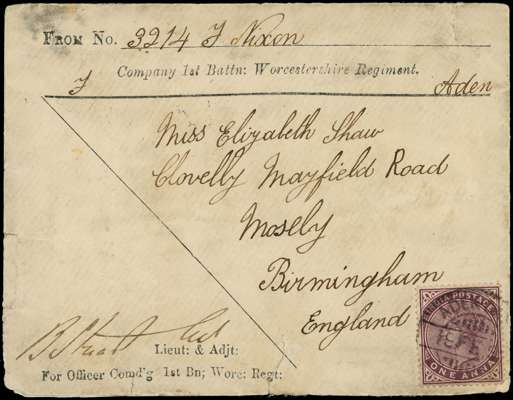 FROM No. 3214 F Nixon
F Company 1st Battn: Worcestershire Regiment.
Aden
Miss Elizabeth Shaw
Clovelly Mayfield Road
Mosely
Birmingham
England
Lieut: & Adjt:
For Officer Comd'g 1st Bn; Worc: Regt:
INDIA POSTAGE
ADEN
ONE ANNA